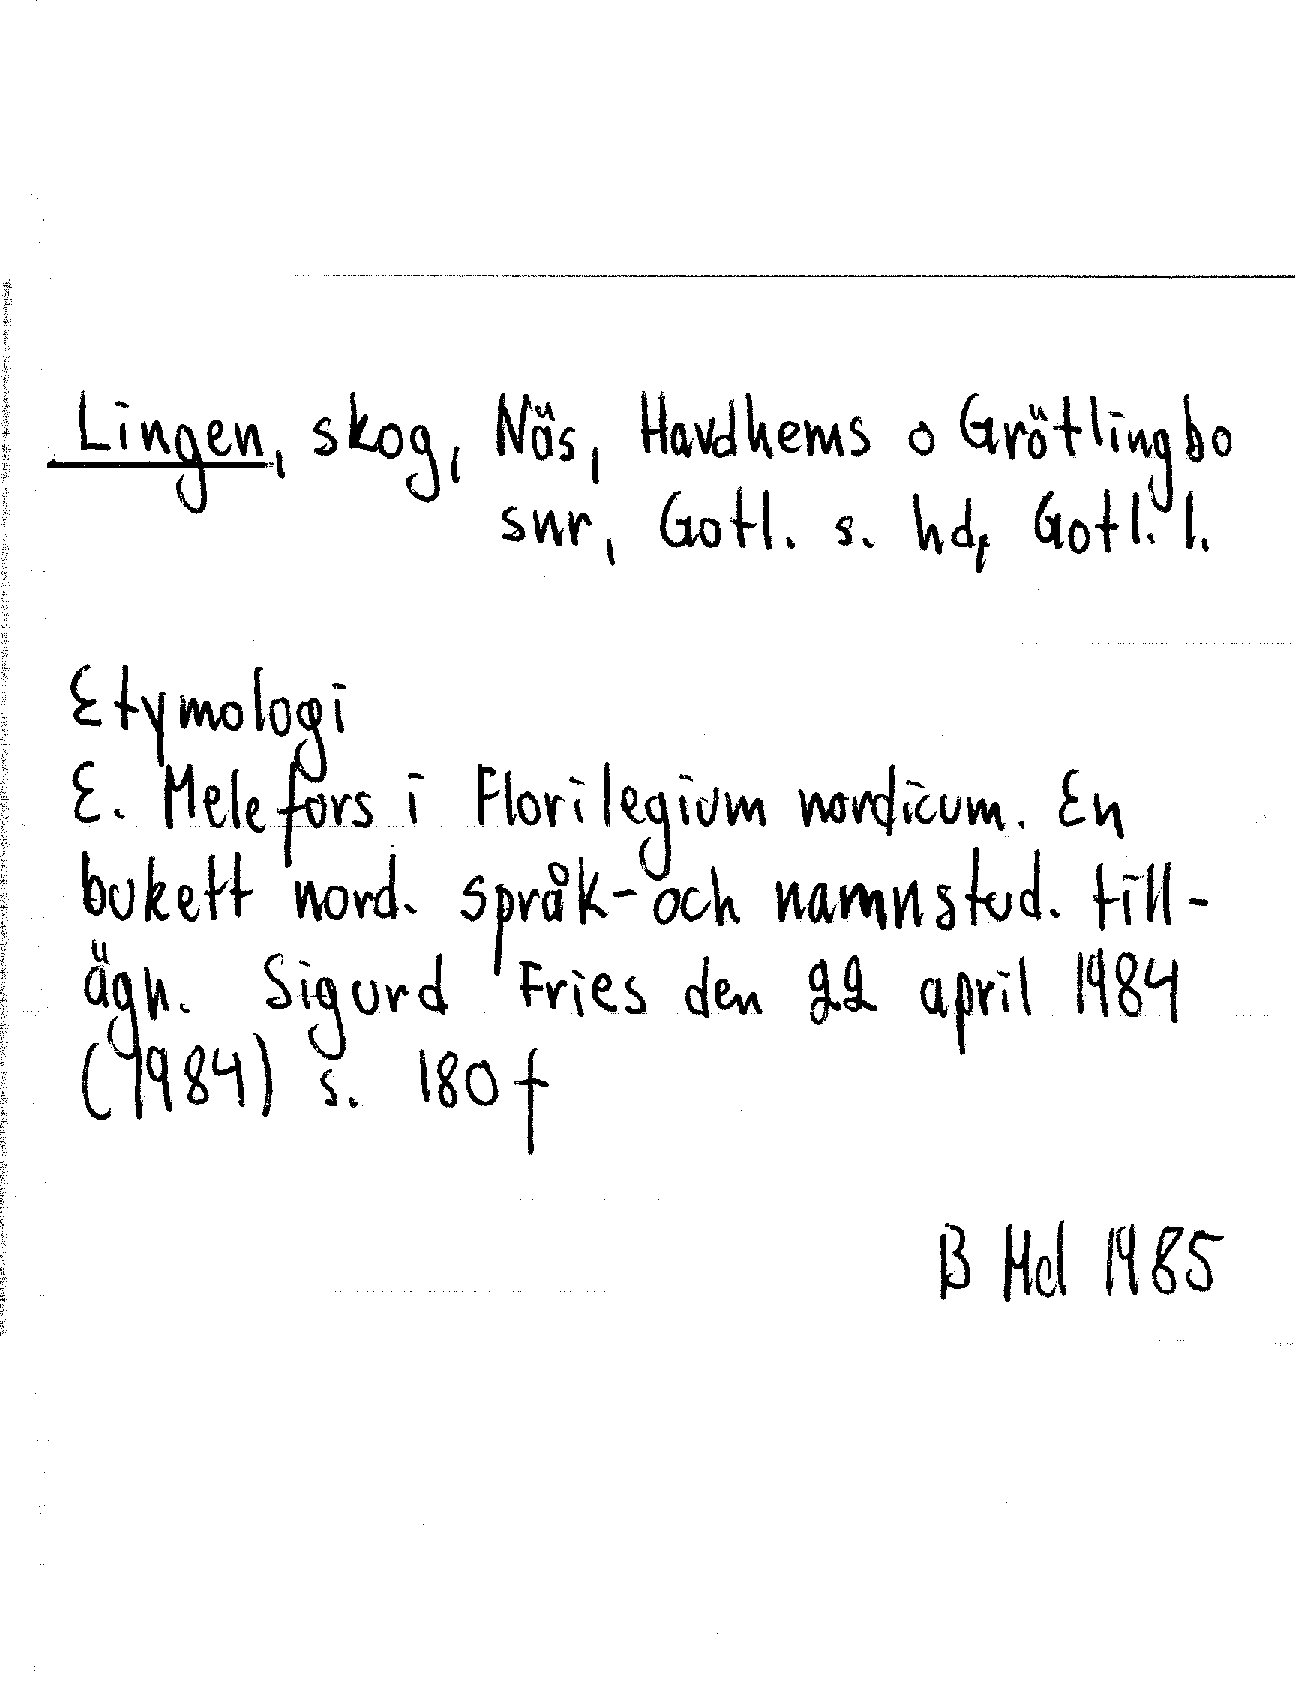 Lingen, skog, Näs, Havdhems o Grötlingbo
snr, Gotl. s. hd, Gotl. l.
Etymologi
E. Melefors i Florilegium nordicum. En
bukett nord. språk- och namnstud. till-
ägn. Sigurd Fries den 22 april 1984
(1984) s. 180 f
B Mel 1985